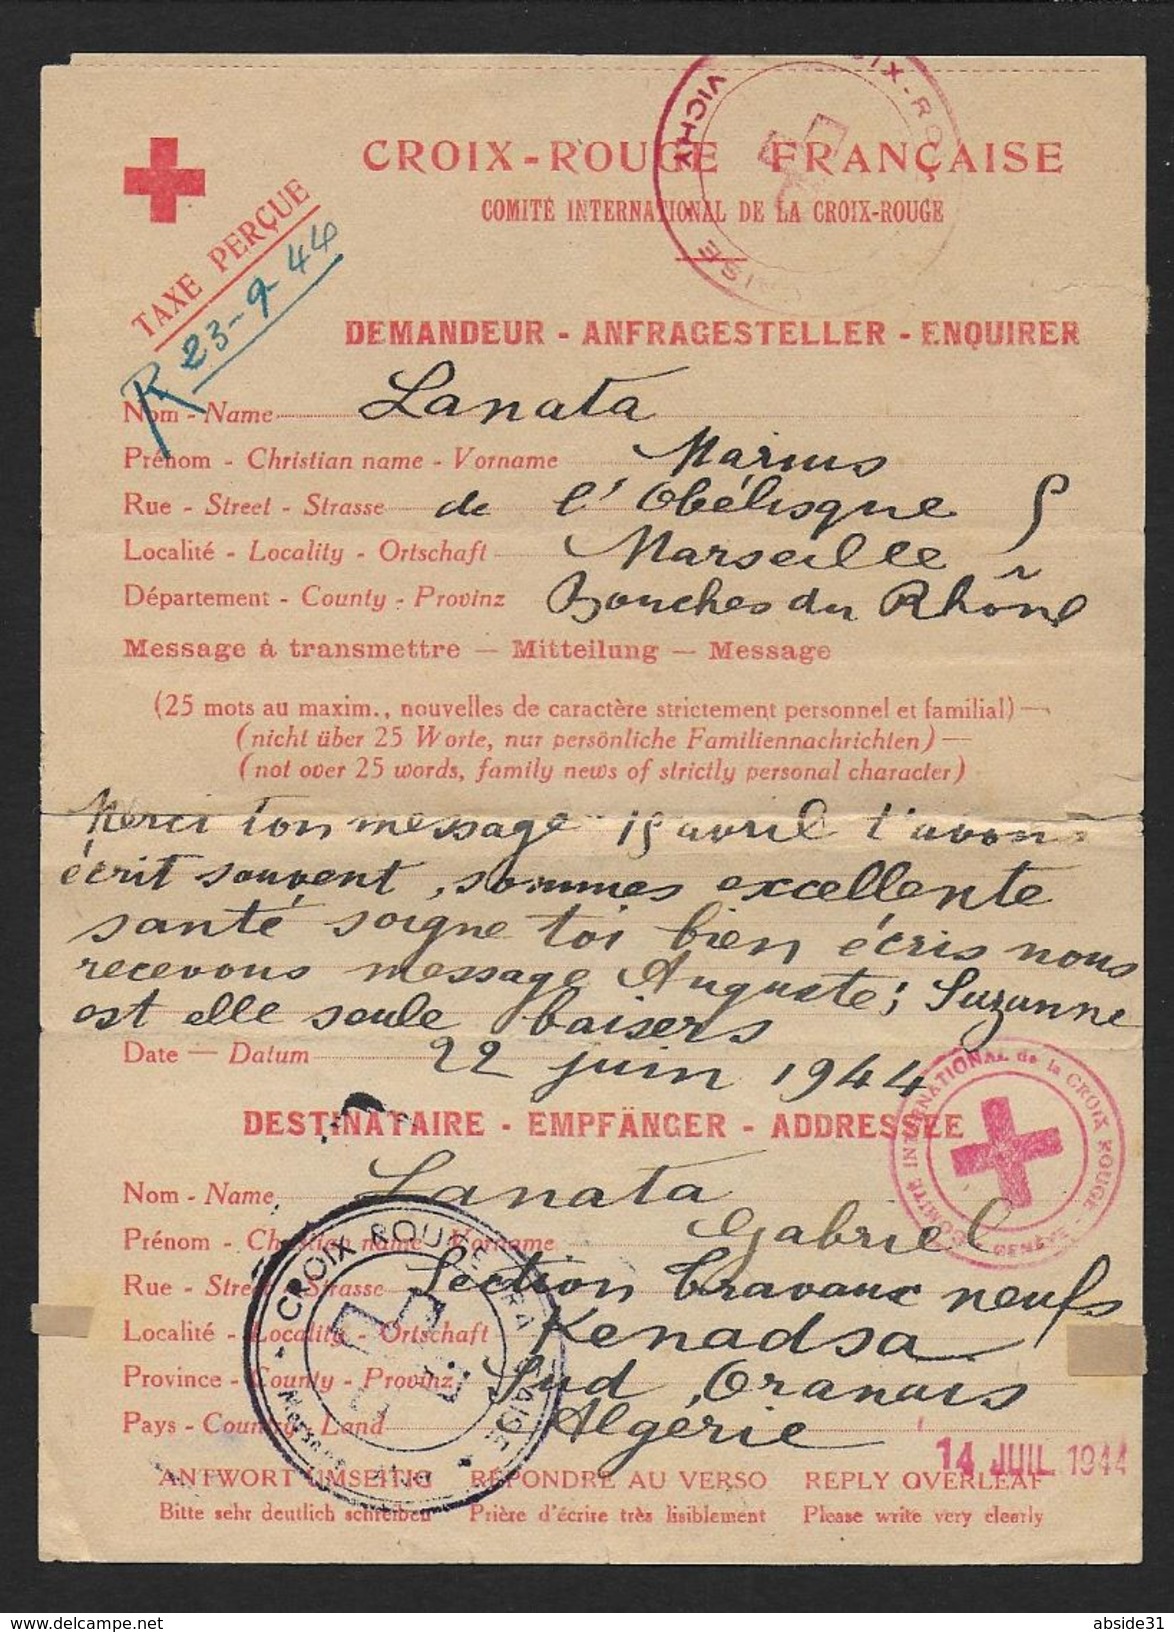 CROIX-ROUGE FRANÇAISE
COMITÉ INTERNATIONAL DE LA CROIX-ROUGE
VICHY
TAXE PERÇUE
R 23-9-44
DEMANDEUR - ANFRAGESTELLER - ENQUIRER
Nom - Name Lanata
Prénom - Christian name - Vorname Marius
Rue - Street - Strasse de l'Obélisque 5
Localité - Locality - Ortschaft Marseille
Département - County - Provinz Bouches du Rhône
Message à transmettre — Mitteilung — Message
(25 mots au maxim., nouvelles de caractère strictement personnel et familial)
(nicht über 25 Worte, nur persönliche Familiennachrichten)
(not over 25 words, family news of strictly personal character)
Merci ton message 15 avril t'avons
écrit souvent, sommes excellente
santé soigne toi bien écris nous
recevons message Auguste; Suzanne
est elle seule baisers
Date — Datum 22 juin 1944
COMITÉ INTERNATIONAL de la CROIX ROUGE - GENÈVE
DESTINATAIRE - EMPFÄNGER - ADDRESSEE
Nom - Name Lanata
Prénom - Christian name - Vorname Gabriel
Rue - Street - Strasse Section travaux neufs
Localité - Locality - Ortschaft Kenadsa
Province - County - Provinz Sud Oranais
Pays - Country - Land Algérie
CROIX ROUGE FRANÇAISE
14 JUIL 1944
ANTWORT UMSEITIG RÉPONDRE AU VERSO REPLY OVERLEAF
Bitte sehr deutlich schreiben Prière d'écrire très lisiblement Please write very clearly
delcampe.net
abside31